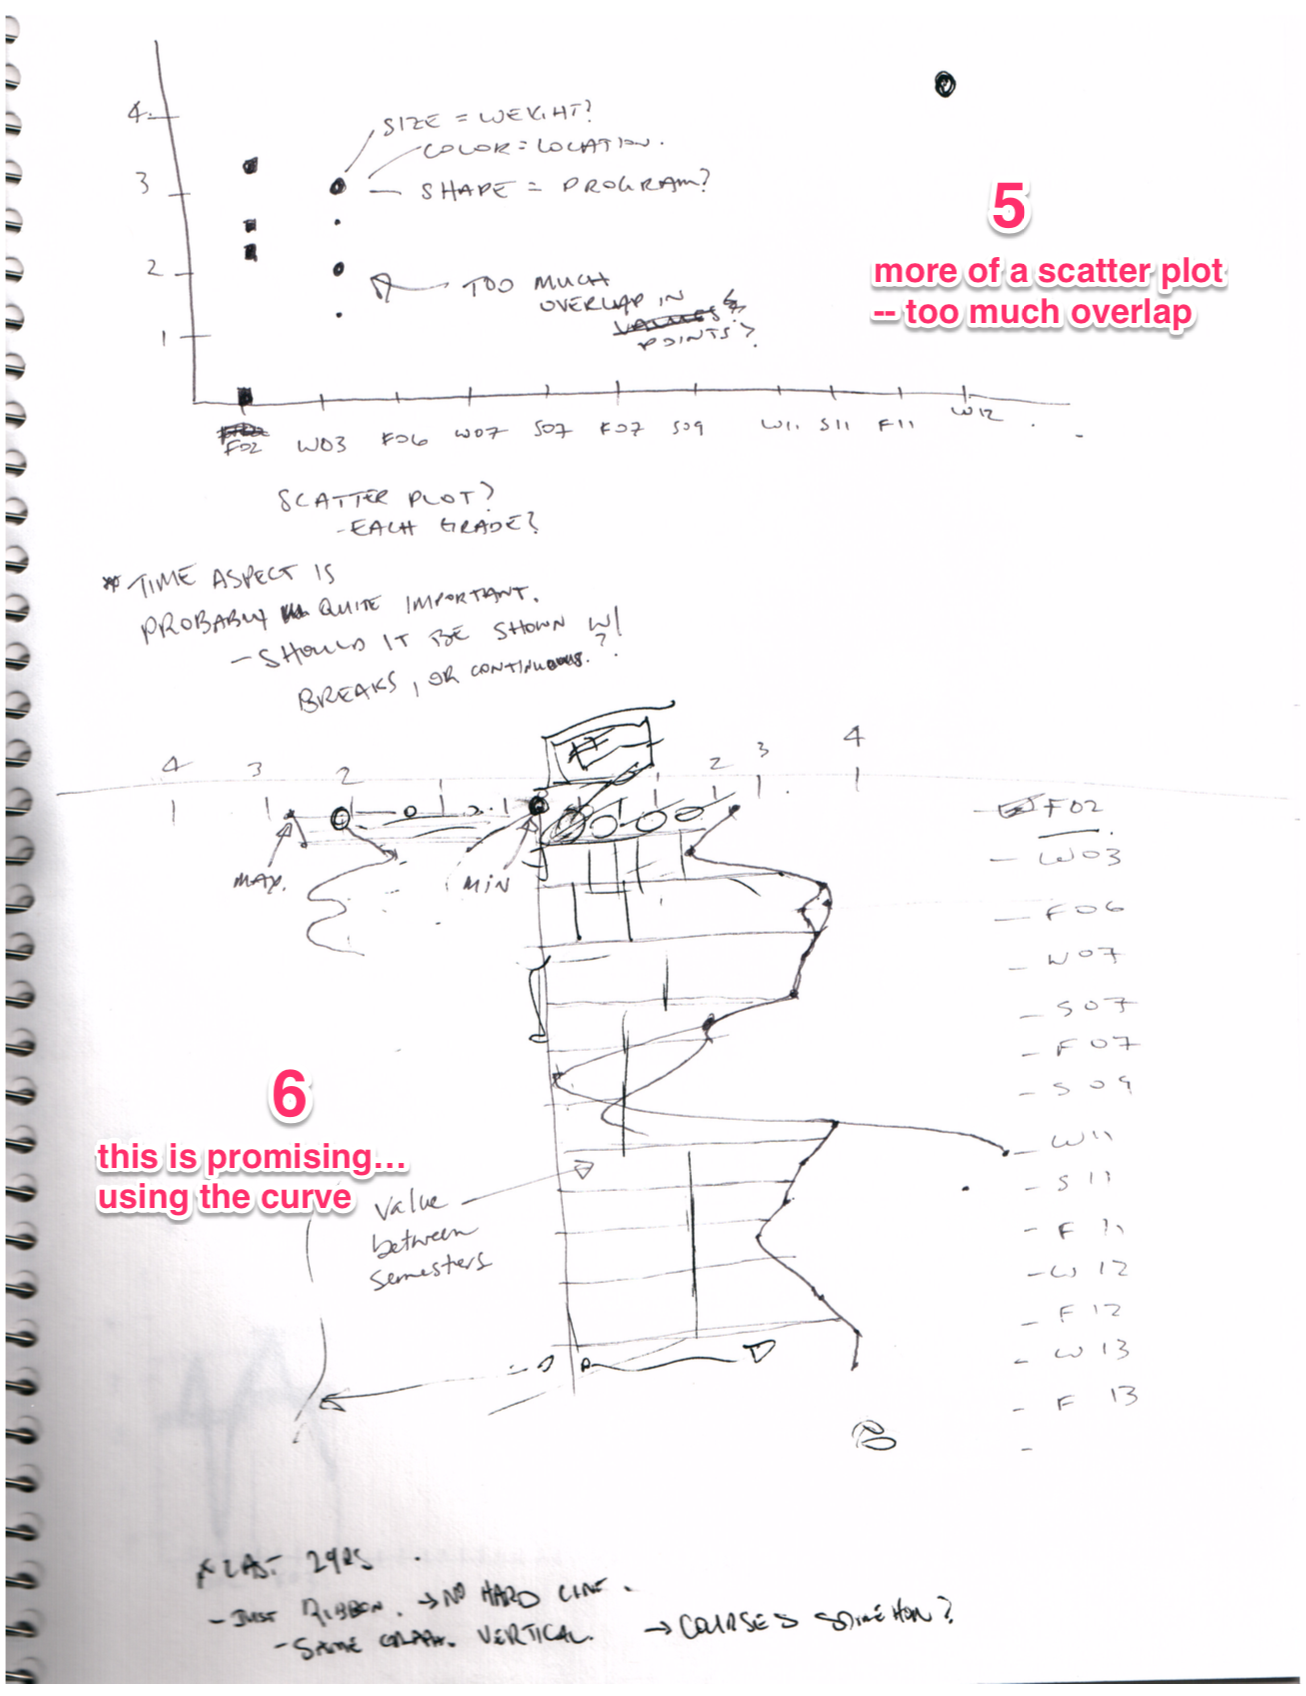 4
SIZE = WEIGHT?
COLOR = LOCATION.
3
SHAPE = PROGRAM?
5
more of a scatter plot
-- too much overlap
2
TOO MUCH
OVERLAP IN
VALUES?
POINTS?
1
F02 W03 F06 W07 S07 F07 S09 W11 S11 F11 W12
SCATTER PLOT?
- EACH GRADE?
* TIME ASPECT IS
PROBABLY QUITE IMPORTANT.
- SHOULD IT BE SHOWN W/
BREAKS, OR CONTINUOUS.?
4 3 2 2 3 4
- F02
MAX.
MIN
- W03
- F06
- W07
- S07
- F07
- S09
6
this is promising...
using the curve
- W11
- S11
value
between
semesters
- F 11
- W 12
- F 12
- W 13
- F 13
LAST 2YRS
- JUST RIBBON. → NO HARD LINE.
- SAME GRAPH. VERTICAL. → COURSES SOMEHOW?